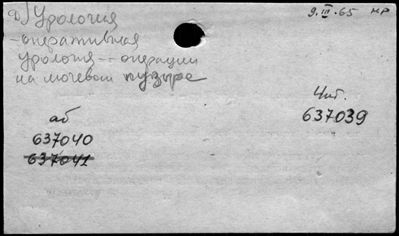 а) Урология 9.III.65 нр
-оперативная
урология -- операции
на мочевом пузыре
Чит.
аб 637039
637040
637041